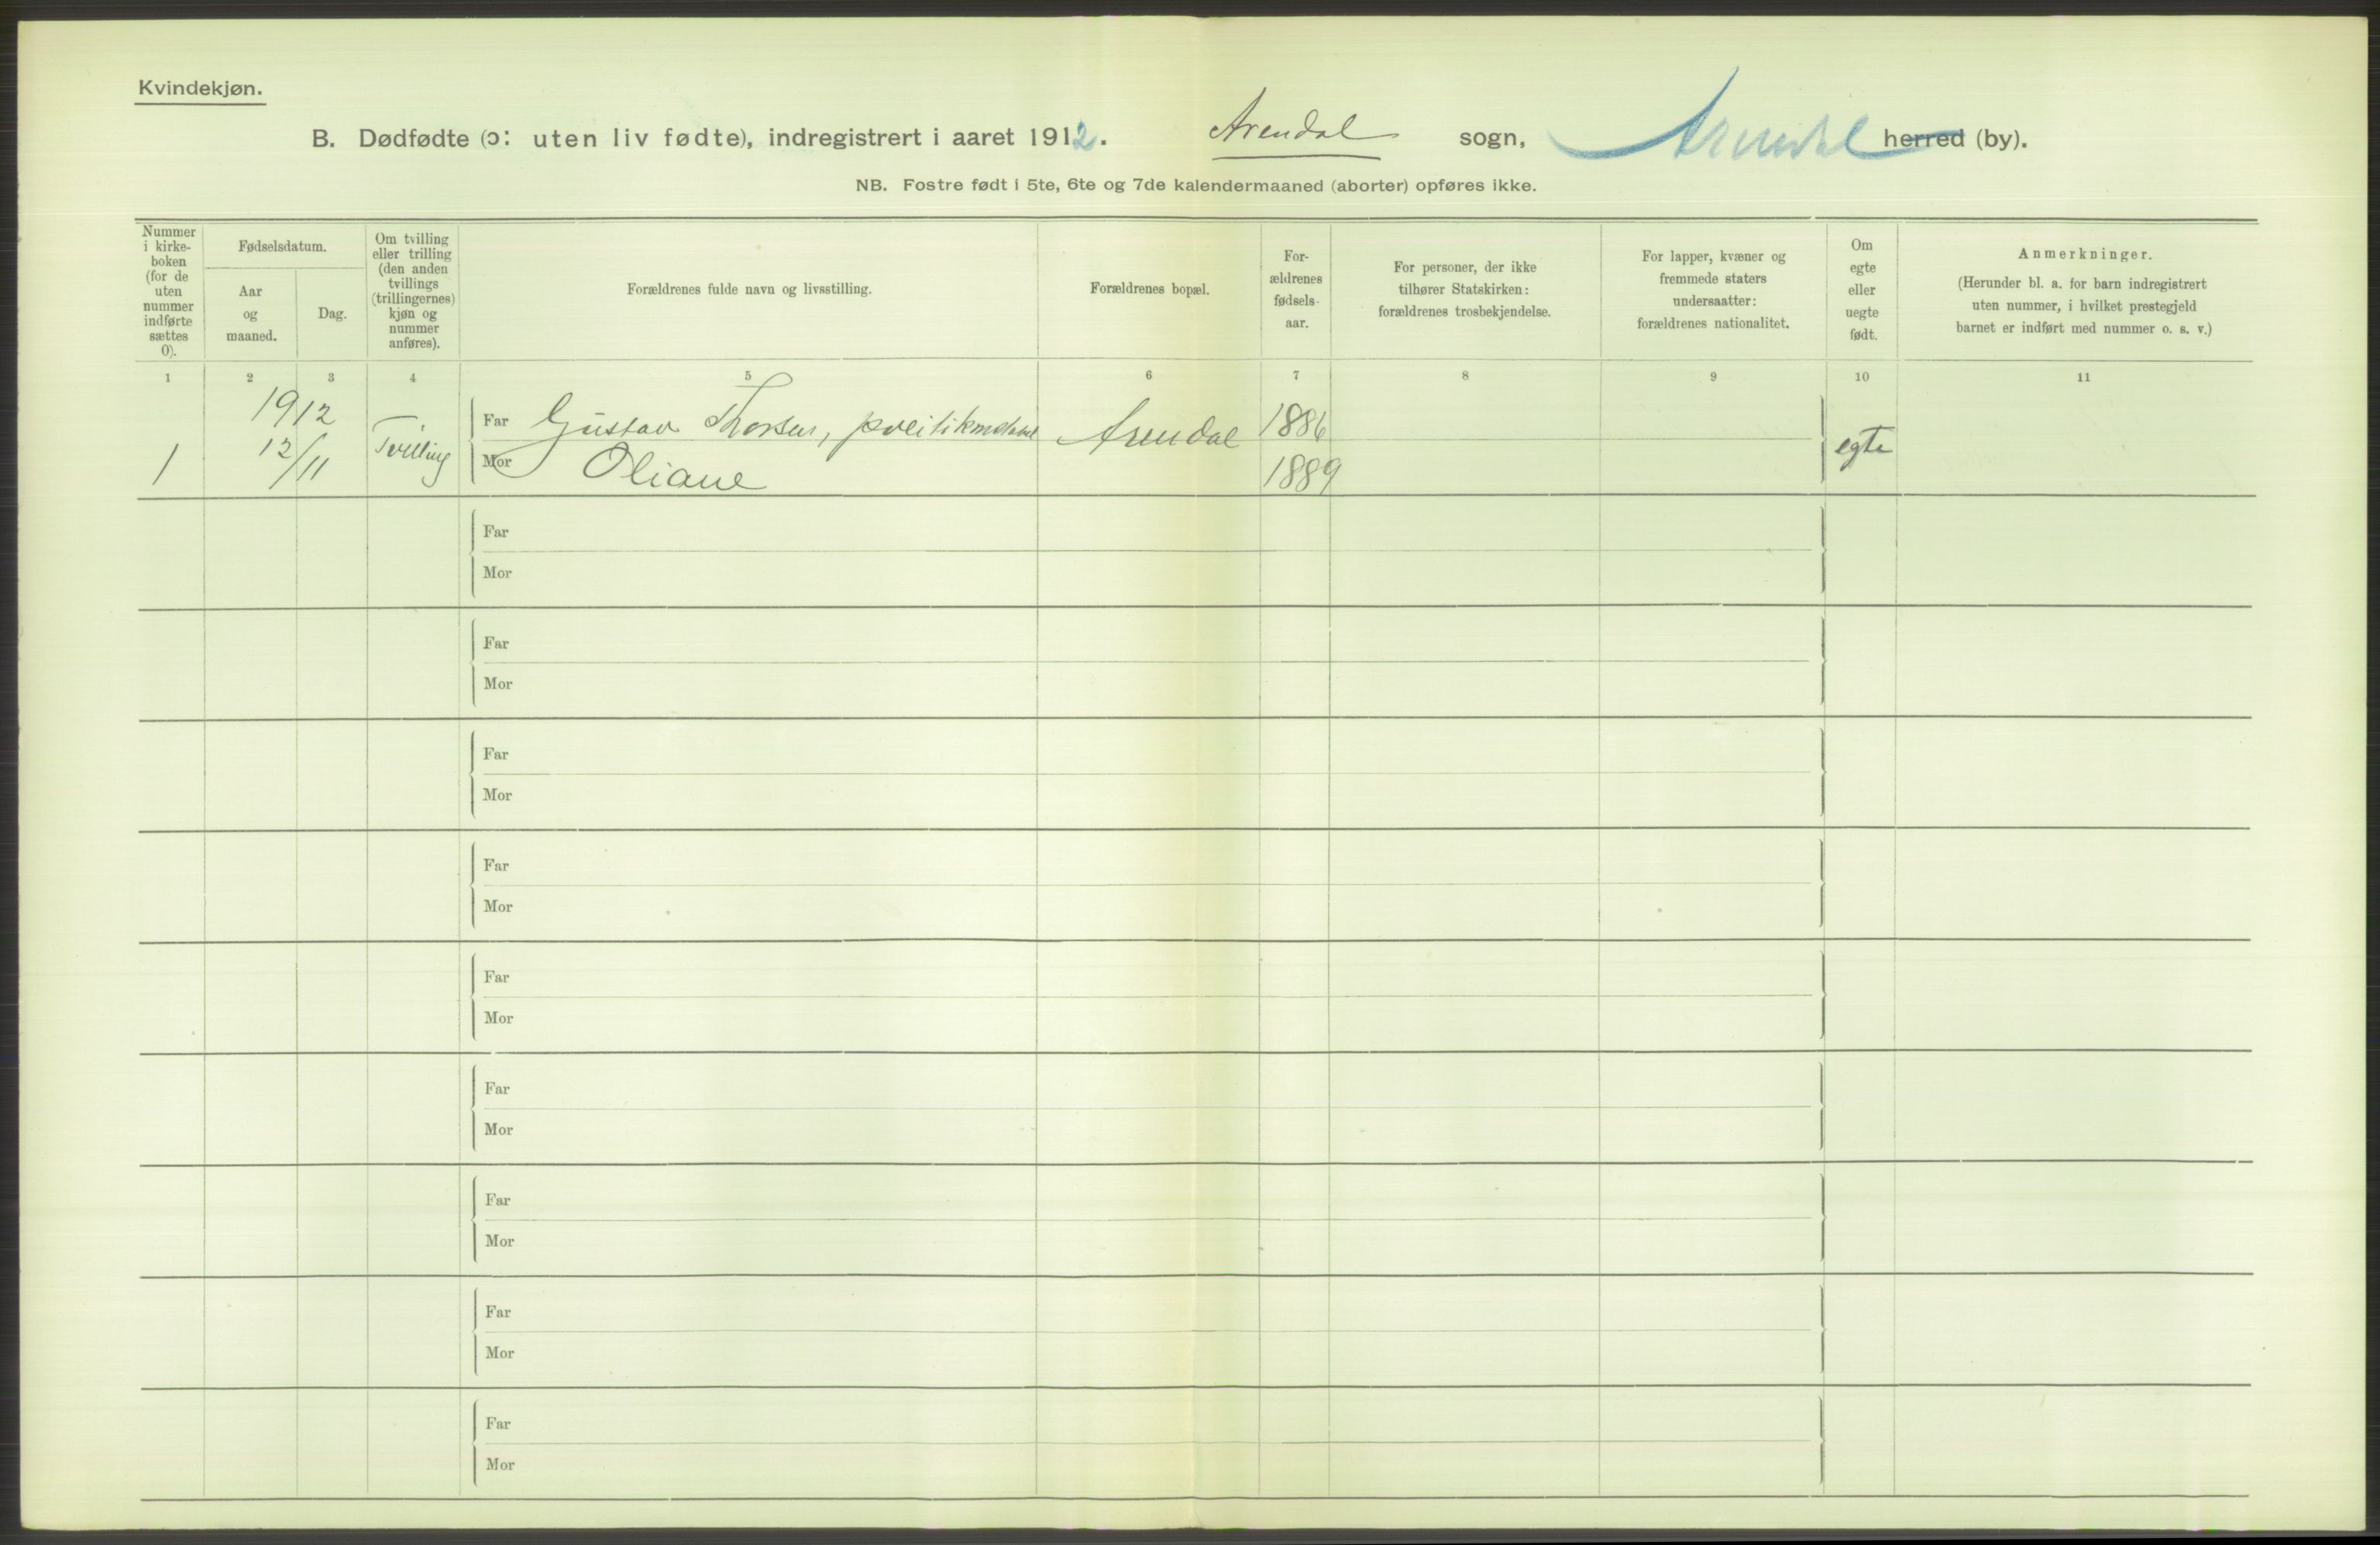 Kvindekjøn.
B. Dødfødte (ɔ: uten liv fødte), indregistrert i aaret 1912. Arendal sogn, Arendal herred (by).
NB. Fostre født i 5te, 6te og 7de kalendermaaned (aborter) opføres ikke.
Nummer i kirke-boken (for de uten nummer indførte sættes 0).
Fødselsdatum.
Aar og maaned.
Dag.
Om tvilling eller trilling (den anden tvillings (trillingernes) kjøn og nummer anføres).
Forældrenes fulde navn og livsstilling.
Forældrenes bopæl.
For-ældrenes fødsels-aar.
For personer, der ikke tilhører Statskirken: forældrenes trosbekjendelse.
For lapper, kvæner og fremmede staters undersaatter: forældrenes nationalitet.
Om egte eller uegte født.
Anmerkninger.
(Herunder bl. a. for barn indregistrert uten nummer, i hvilket prestegjeld barnet er indført med nummer o. s. v.)
1 2 3 4 5 6 7 8 9 10 11
1912
Far Gustav Thorsen, Arendal 1886
1 12/11 Tvilling Mor Oliane 1889 egte
Far
Mor
Far
Mor
Far
Mor
Far
Mor
Far
Mor
Far
Mor
Far
Mor
Far
Mor
Far
Mor